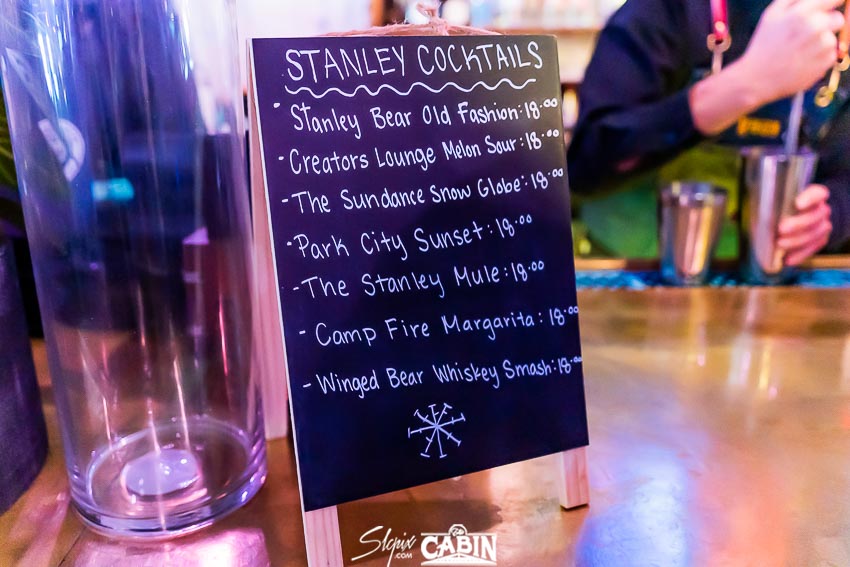 STANLEY COCKTAILS
· Stanley Bear Old Fashion: 18.00
- Creators Lounge Melon Sour: 18.00
- The Sundance Snow Globe: 18.00
· Park City Sunset: 18.00
- The Stanley Mule: 18.00
- Camp Fire Margarita: 18.00
- Winged Bear Whiskey Smash: 18.00
Slcpix
.COM
CABIN